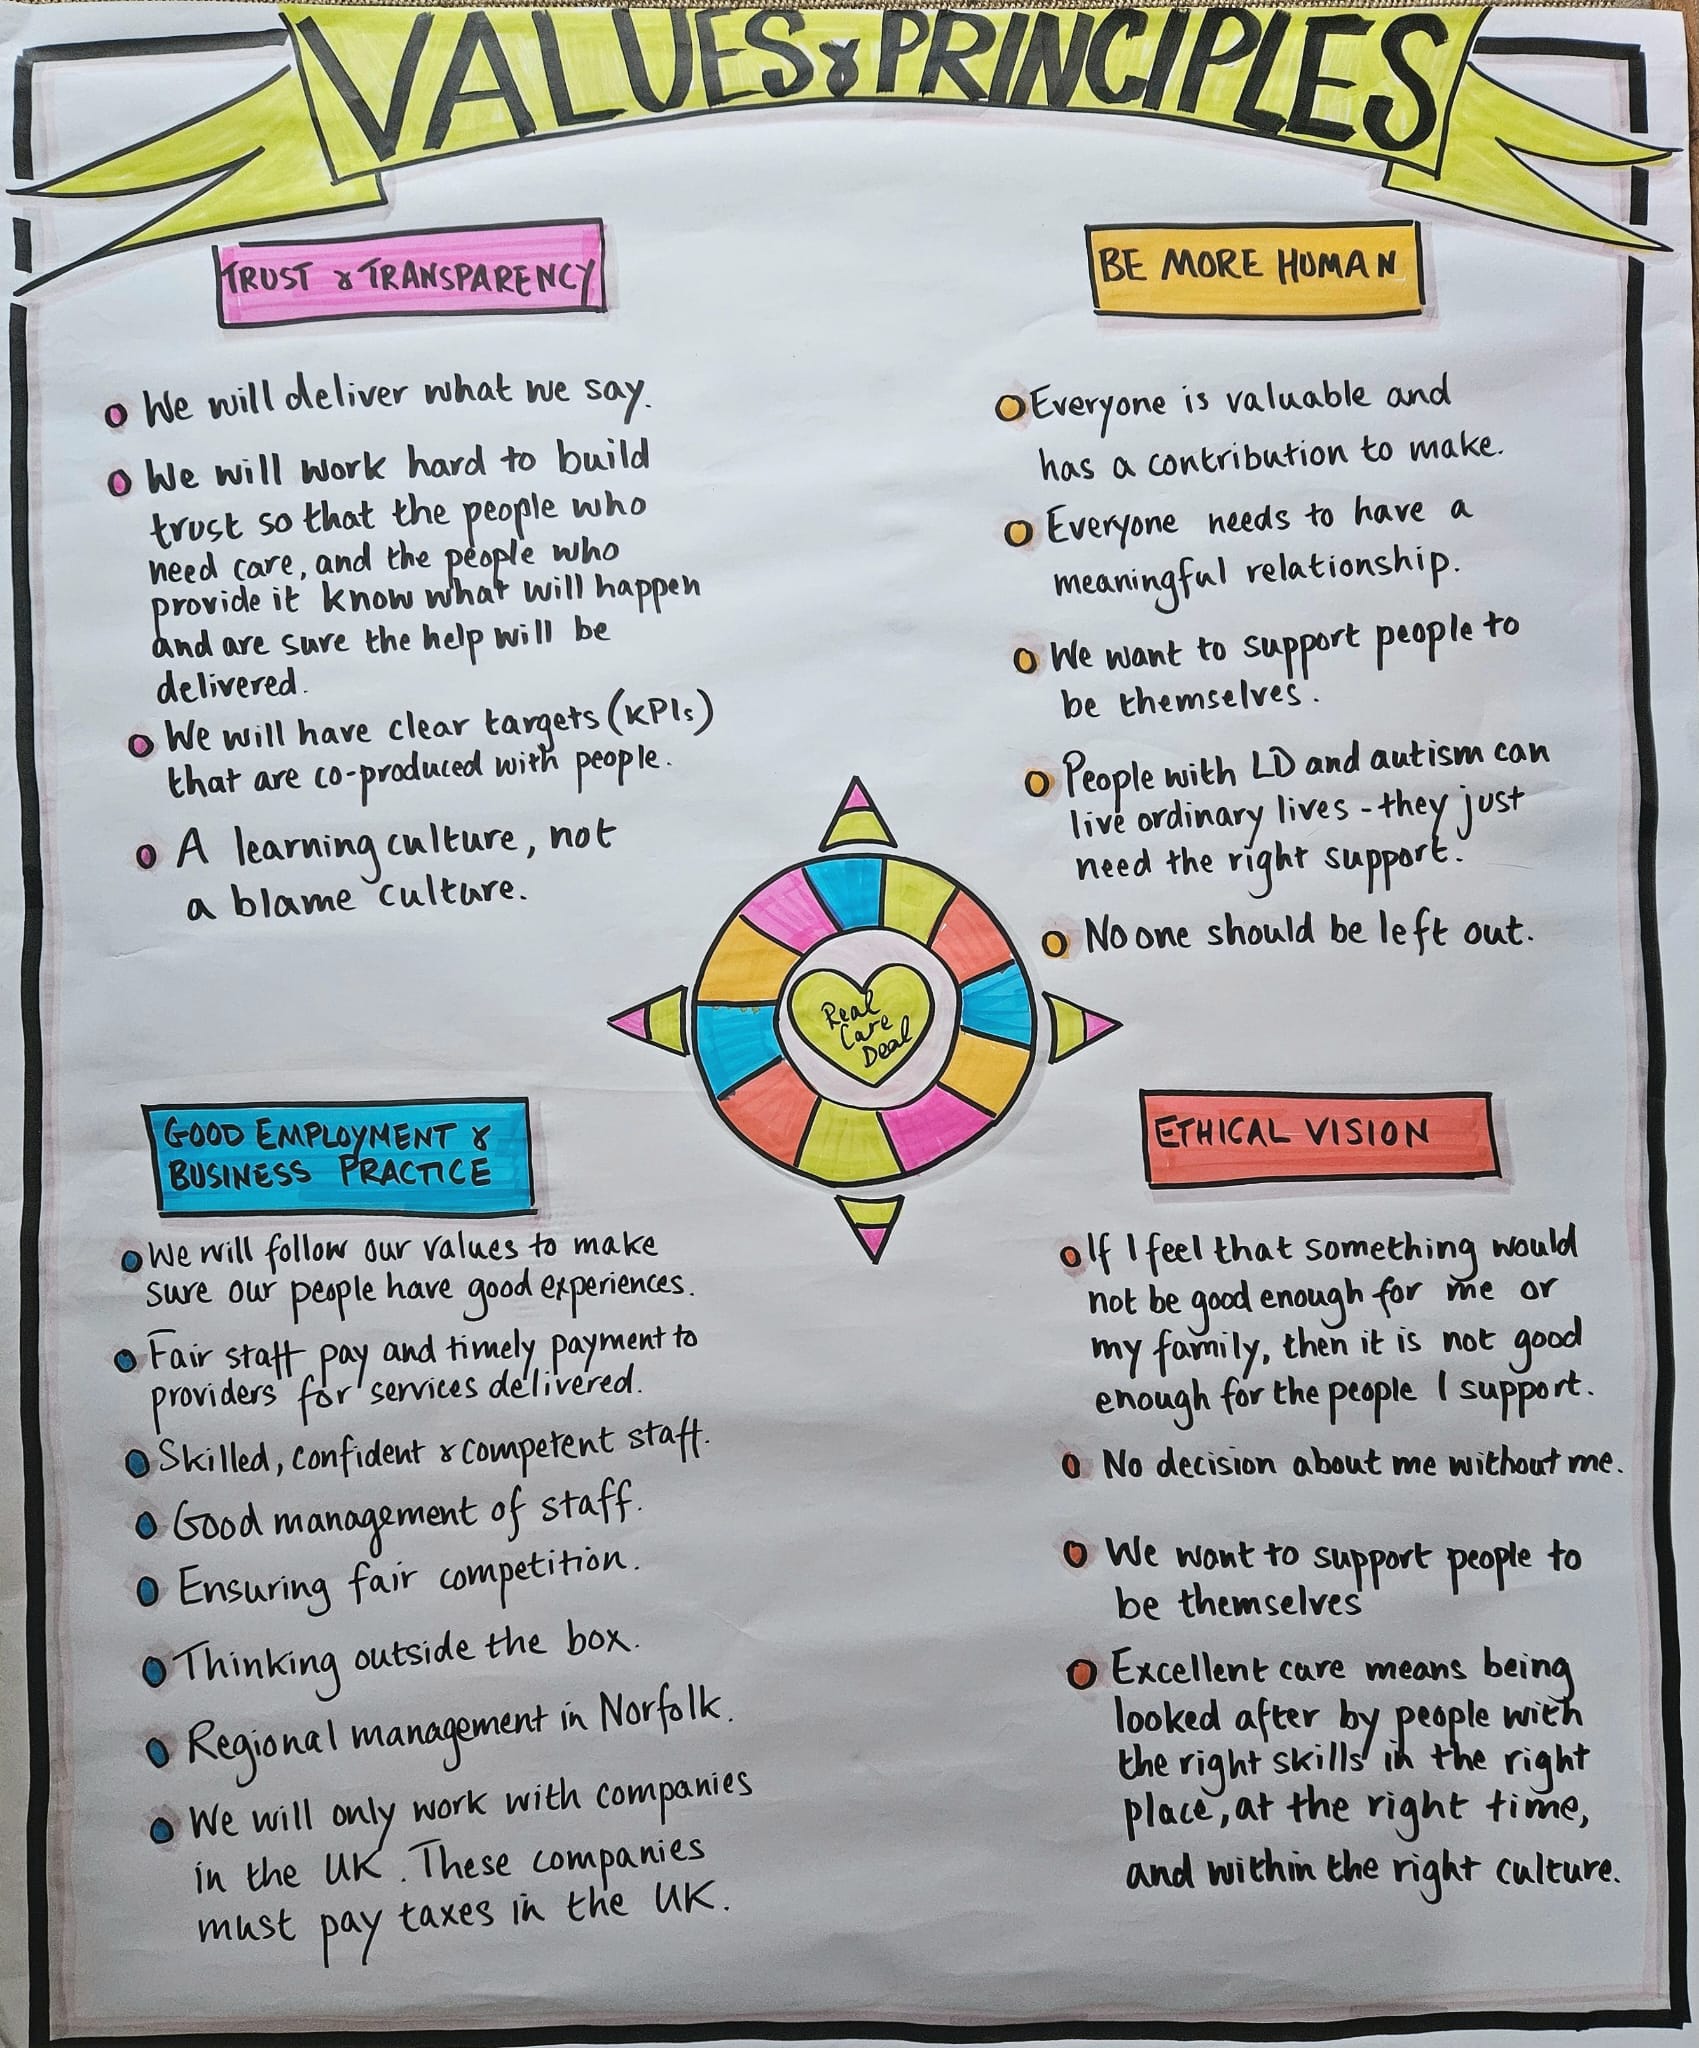 VALUES & PRINCIPLES
TRUST & TRANSPARENCY
We will deliver what we say.
We will work hard to build
trust so that the people who
need care, and the people who
provide it know what will happen
and are sure the help will be
delivered.
We will have clear targets (KPIs)
that are co-produced with people.
A learning culture, not
a blame culture.
BE MORE HUMAN
Everyone is valuable and
has a contribution to make.
Everyone needs to have a
meaningful relationship.
We want to support people to
be themselves.
People with LD and autism can
live ordinary lives - they just
need the right support.
No one should be left out.
Real
Care
Deal
GOOD EMPLOYMENT &
BUSINESS PRACTICE
We will follow our values to make
sure our people have good experiences.
Fair staff pay and timely payment to
providers for services delivered.
Skilled, confident & competent staff.
Good management of staff.
Ensuring fair competition.
Thinking outside the box.
Regional management in Norfolk.
We will only work with companies
in the UK. These companies
must pay taxes in the UK.
ETHICAL VISION
If I feel that something would
not be good enough for me or
my family, then it is not good
enough for the people I support.
No decision about me without me.
We want to support people to
be themselves
Excellent care means being
looked after by people with
the right skills in the right
place, at the right time,
and within the right culture.